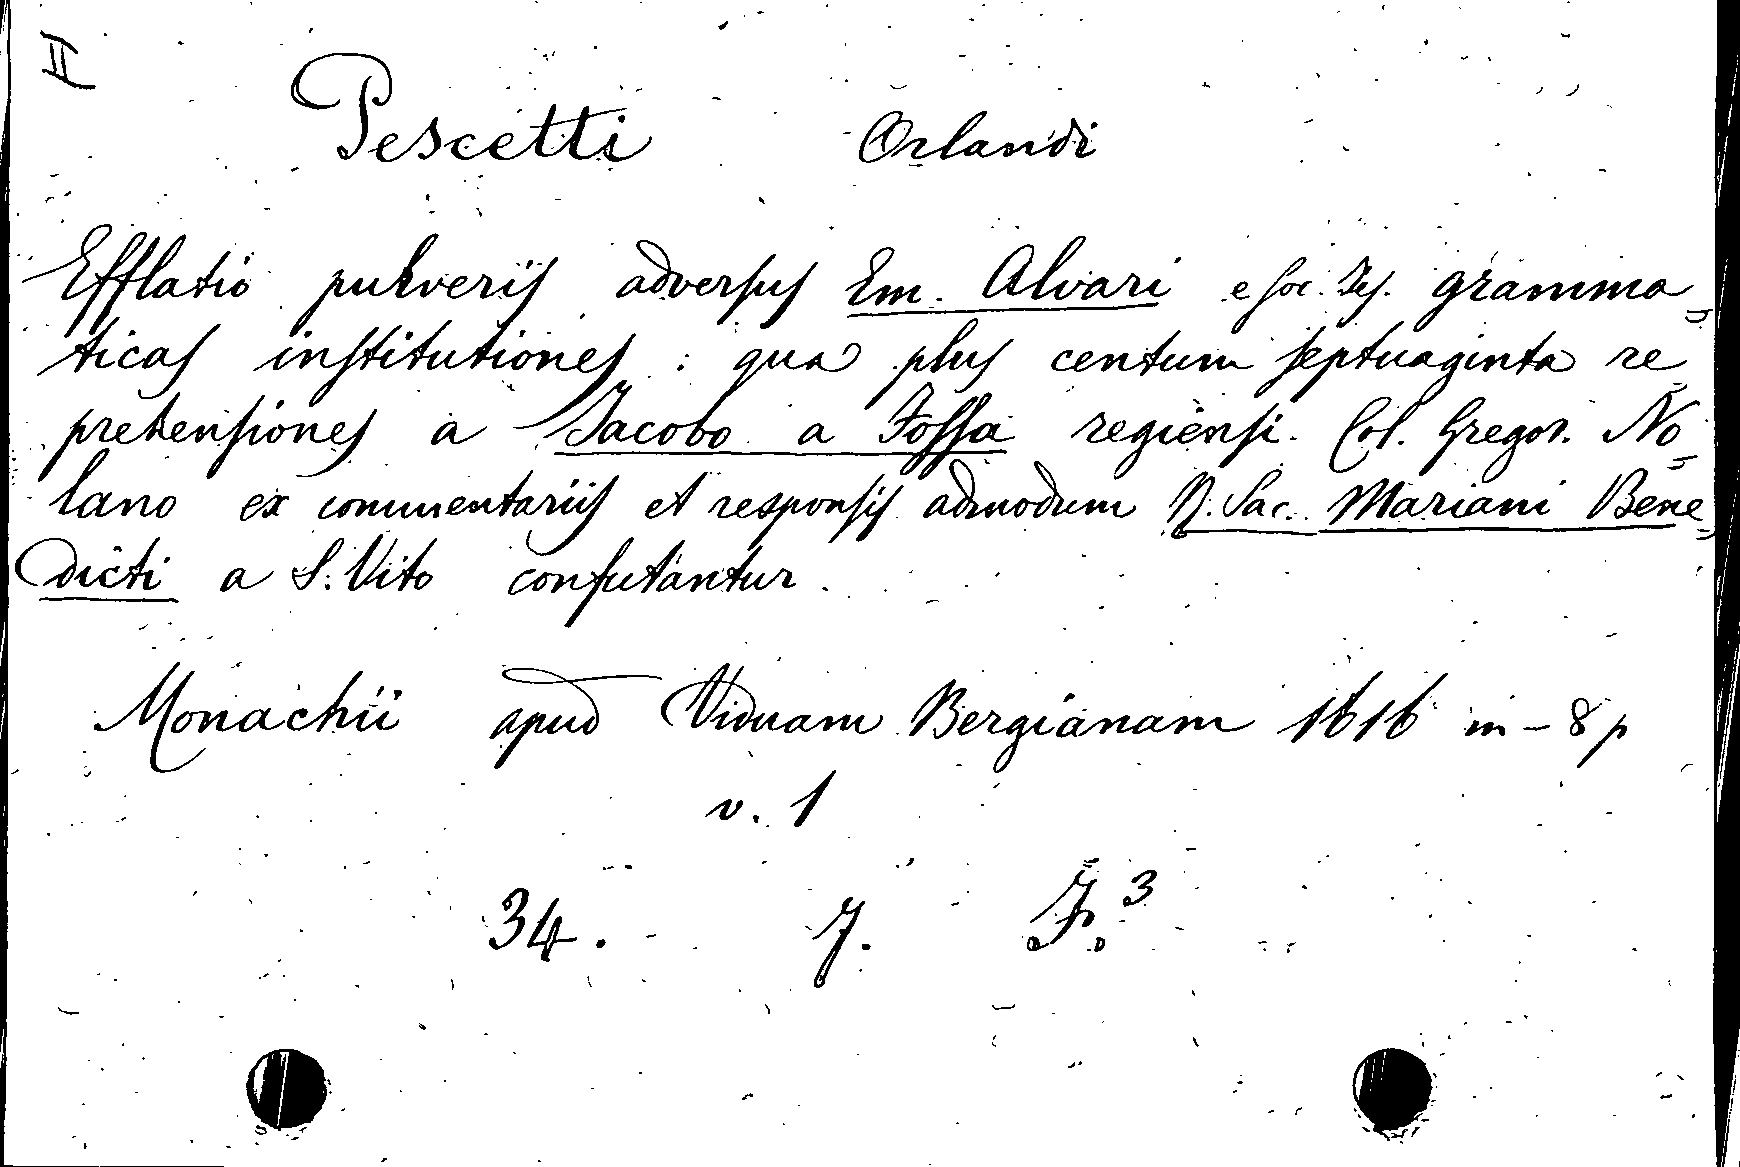 II
Pescetti Orlandi
Efflatio pulveris adversus Em. Alvari e soc. Jes. gramma=
ticas institutiones : qua plus centum septuaginta re=
prehensiones a Jacobo a Fossa regiensi. Col. Gregor. No=
lano ex commentariis et responsis admodum R. Sac. Mariani Bene=
dicti a S. Vito confutantur.
Monachii apud Viduam Bergianam 1616 in-8 p
v. 1
34. 7. F.3